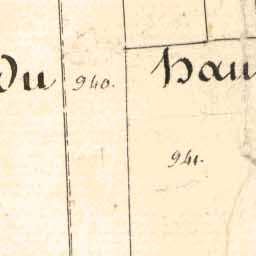 Du 940. Hau
941.